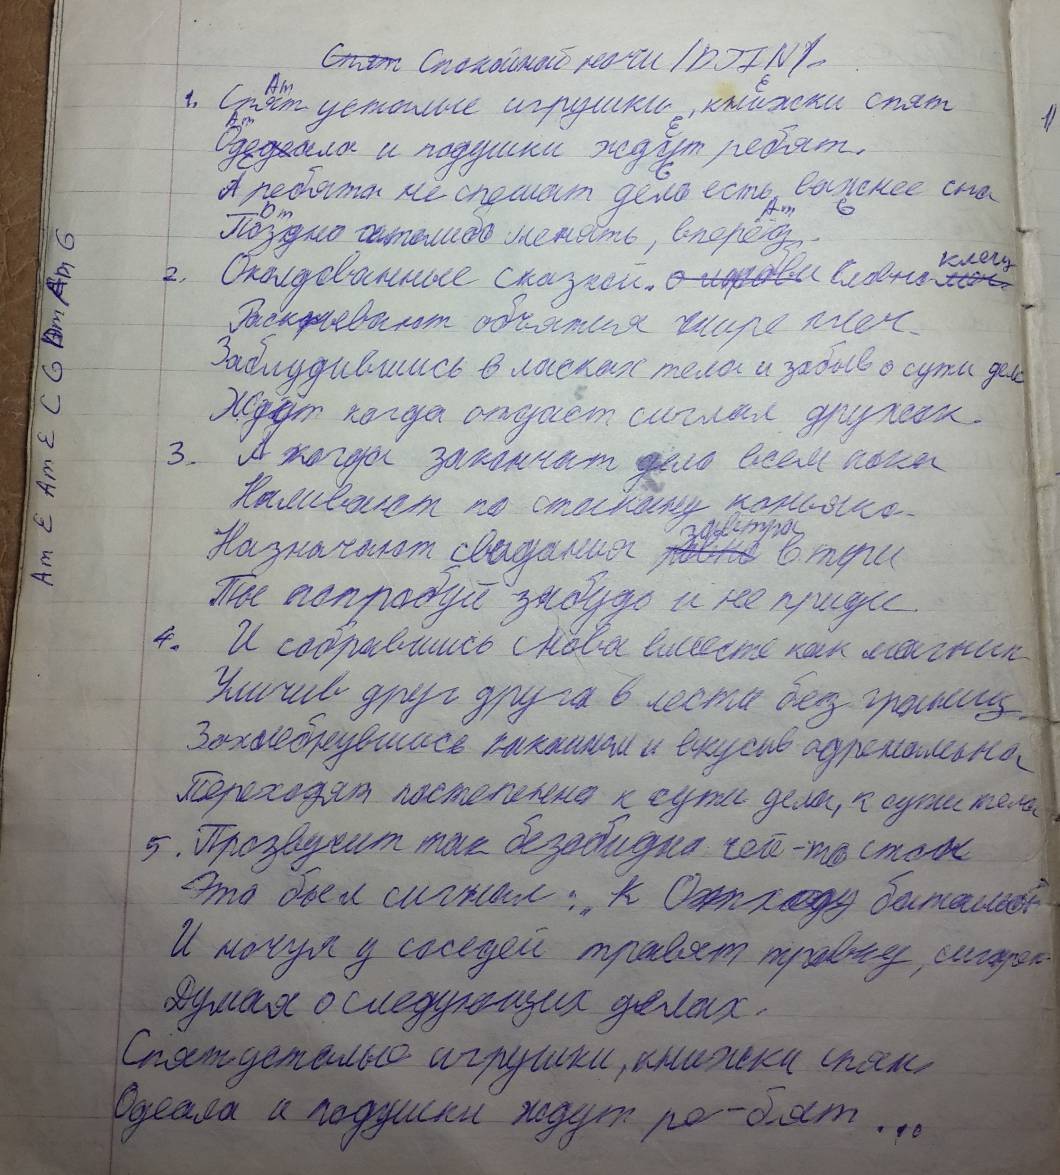 Спокойной ночи /DJIN/.
1. Спят усталые игрушки, книжки спят
Am E
Одеала и подушки ждут ребят.
Am E
А ребята не спешат дело есть важнее сна
C G
Поздно что-либо менять, вперёд.
Dm Am E
2. Околдованные сказкой. Словно клегу
Раскрывают объятия шире плеч.
Заблудившись в ласках тела и забыв о сути дела
Ждут когда отдаст сигнал дружок.
3. А когда закончат дело всем пока
Наливают по стакану коньяка.
Назначают свидания завтра в три
Ты попробуй забудь и не приди
4. И собравшись снова вместе как магнит
Уличив друг друга в лести без границ.
Захлебнувшись и вкусив адреналина
Переходят постепенно к сути дела, к сути тела
5. Прозвучит так безобидно чей-то стон
Это был сигнал: „К Отходу батальон
И ночуя у соседей травят травку, сигарет
Думая о следующих делах.
Спят усталые игрушки, книжки спят.
Одеала и подушки ждут ре-бят...
Am E Am E C G Dm Am G